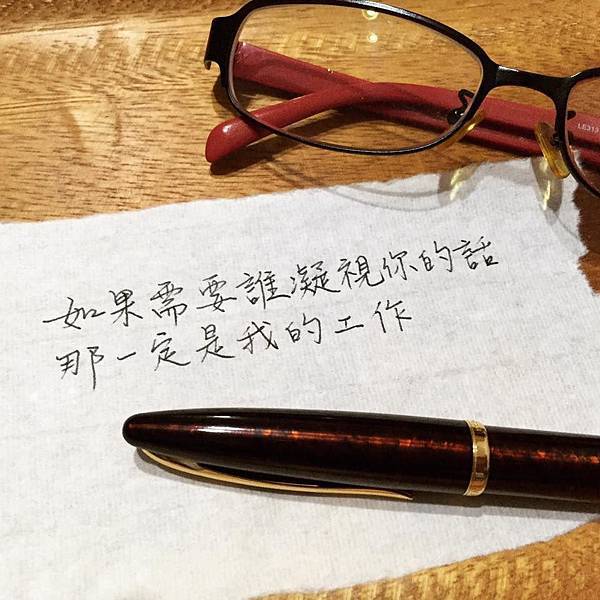 如果需要誰凝視你的話
那一定是我的工作
LE313